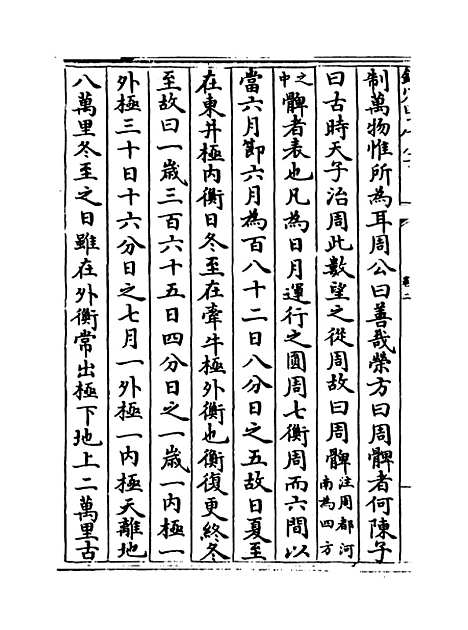 制萬物惟所為耳周公曰善哉榮方曰周髀者何陳子
曰古時天子治周此數望之從周故曰周髀注周都河南為四方
之中髀者表也凡為日月運行之圓周七衡周而六間以
當六月節六月為百八十二日八分日之五故日夏至
在東井極內衡日冬至在牽牛極外衡也衡復更終冬
至故曰一歲三百六十五日四分日之一歲一內極一
外極三十日十六分日之七月一外極一內極天離地
八萬里冬至之日雖在外衡常出極下地上二萬里古
卷二